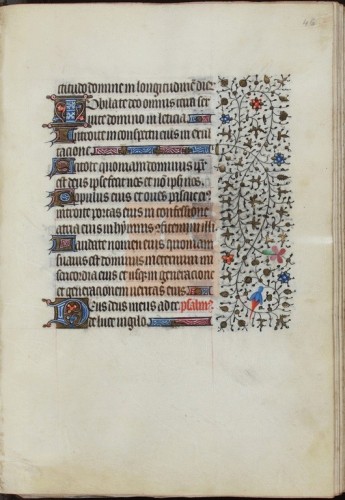 46
ctitudo domine in longitudinē die
Iubilate deo omnis terra ser
uite domino in leticia
Introite in conspectu eius in exul
tacione
Scitote quoniam dominus ipē
est deus ipse fecit nos et nō ipsi nos
Populus eius et oues pascue ei
introite portas eius in confessione
atria eius in ymnis confitemini illi
Laudate nomen eius quoniam
suauis est dominus in eternum mi
sericordia eius et usqꝫ in generacione
et generacionem ueritas eius
Deus deus meus ad te psalmꝰ
de luce uigilo